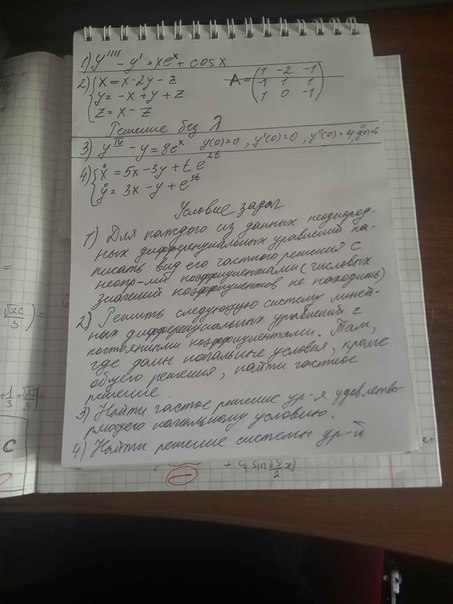 1) y'''' - y' = xeˣ + cos x
2) { x = x - 2y - z     A = ( 1 -2 -1
y = -x + y + z     -1 1 1
z = x - z     1 0 -1 )
Решение без λ
3) yᴵⱽ - y = 8eˣ   y(0)=0, y'(0)=0, y''(0)=4, y'''(0)=6
4) { ẋ = 5x - 3y + te²ᵗ
ẏ = 3x - y + e³ᵗ
Условие задач
1) Для каждого из данных неоднород-
ных дифференциальных уравнений на-
писать вид его частного решения с
неопр-мей коэффициентами (числовых
значений коэффициентов не находить)
2) Решить следующую систему линей-
ных дифференциальных уравнений с
постоянными коэффициентами. Там,
где даны начальные условия, кроме
общего решения, найти частное
решение.
3) Найти частое решение ур-я удовлетво-
ряющего начальному условию.
4) Найти решение системы ур-й